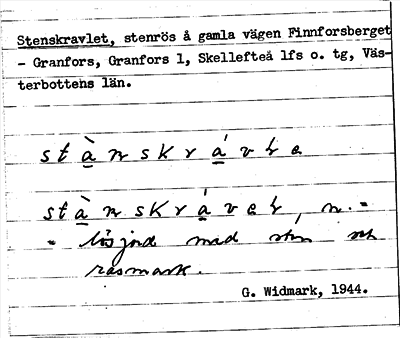 Stenskravlet, stenrös å gamla vägen Finnforsberget
- Granfors, Granfors 1, Skellefteå lfs o. tg, Väs-
terbottens län.
stànskrávle
stànskrável, n. =
= lös jord med sten och
rasmark.
G. Widmark, 1944.